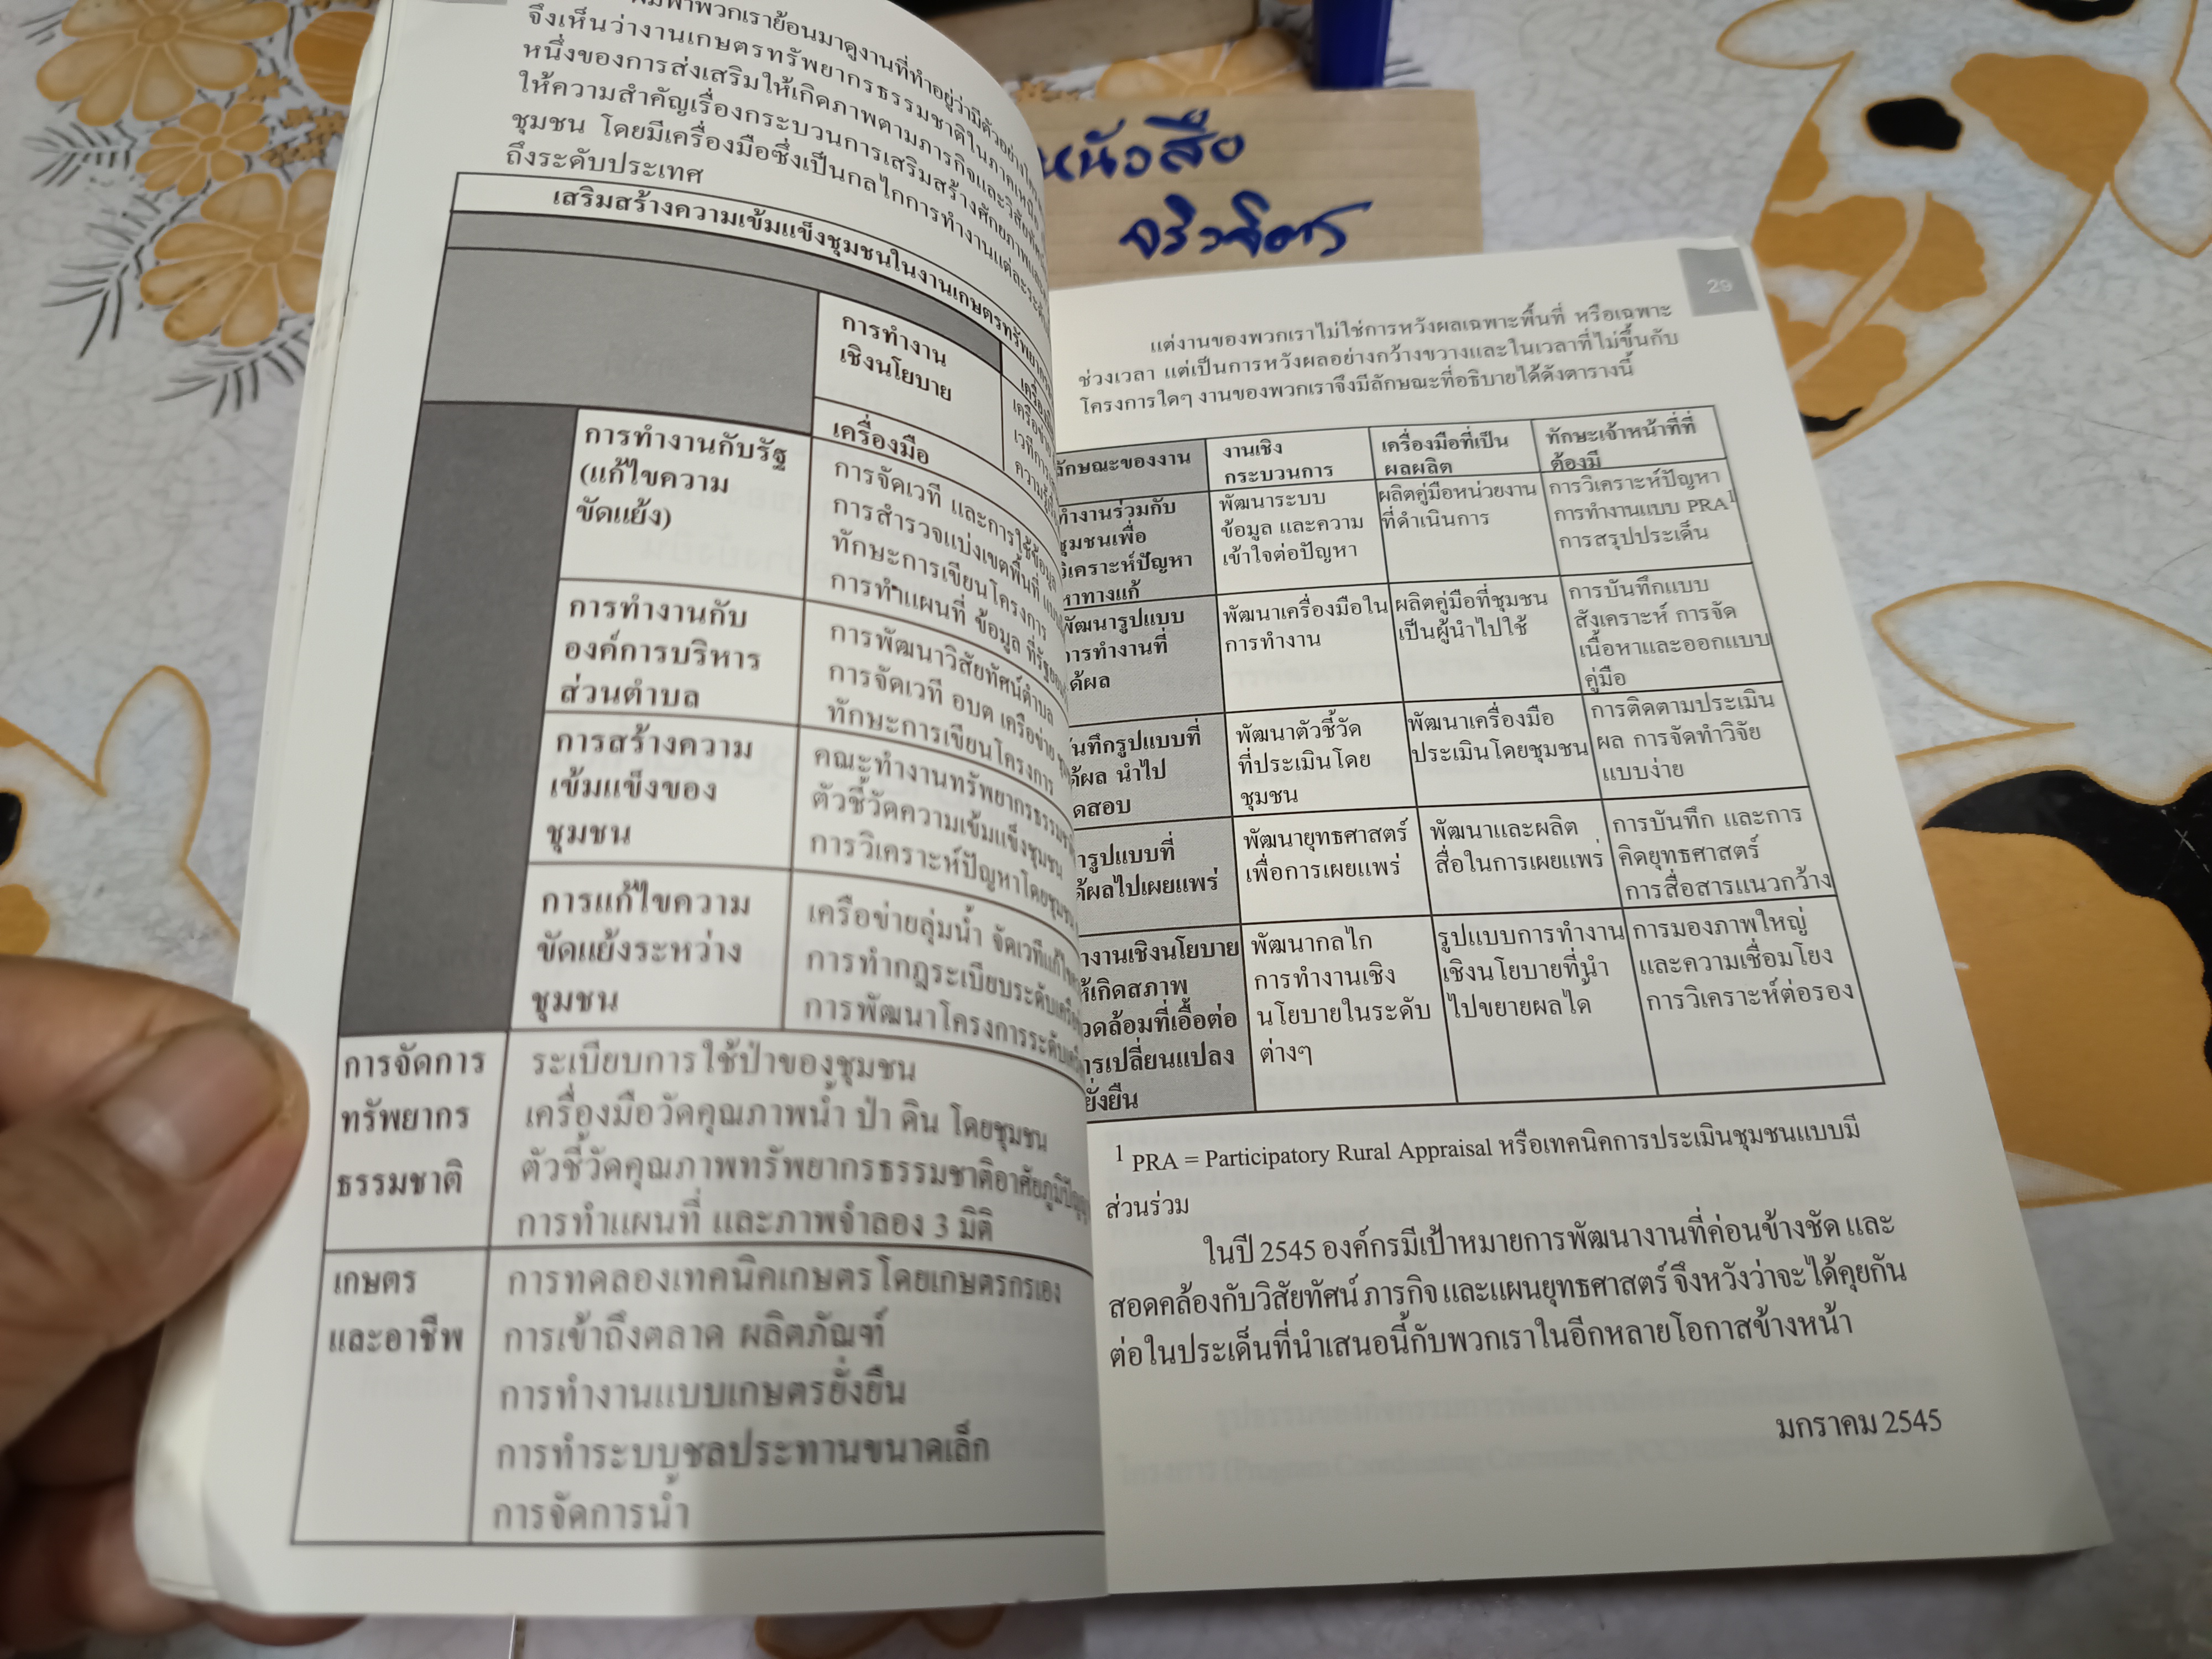 พวกเราย้อนมาดูงานที่ทำอยู่ว่ามีตัวอย่าง
จึงเห็นว่างานเกษตรทรัพยากรธรรมชาติในภาคเหนือ
หนึ่งของการส่งเสริมให้เกิดภาพตามภารกิจและวิสัยทัศน์
ให้ความสำคัญเรื่องกระบวนการเสริมสร้างศักยภาพ
ชุมชน โดยมีเครื่องมือซึ่งเป็นกลไกการทำงานแต่ละระดับ
ถึงระดับประเทศ
เสริมสร้างความเข้มแข็งชุมชนในงานเกษตรทรัพยากร
การทำงาน
เชิงนโยบาย
เครื่องมือ
การทำงานกับรัฐ
(แก้ไขความ
ขัดแย้ง)
การจัดเวที และการใช้ข้อมูล
การสำรวจแบ่งเขตพื้นที่
ทักษะการเขียนโครงการ
การทำแผนที่ ข้อมูล
การทำงานกับ
องค์การบริหาร
ส่วนตำบล
การพัฒนาวิสัยทัศน์ตำบล
การจัดเวที อบต เครือข่าย
ทักษะการเขียนโครงการ
การสร้างความ
เข้มแข็งของ
ชุมชน
คณะทำงานทรัพยากรธรรมชาติ
ตัวชี้วัดความเข้มแข็งชุมชน
การวิเคราะห์ปัญหาโดยชุมชน
การแก้ไขความ
ขัดแย้งระหว่าง
ชุมชน
เครือข่ายลุ่มน้ำ จัดเวทีแก้ไข
การทำกฎระเบียบระดับเครือข่าย
การพัฒนาโครงการระดับ
การจัดการ
ทรัพยากร
ธรรมชาติ
ระเบียบการใช้ป่าของชุมชน
เครื่องมือวัดคุณภาพน้ำ ป่า ดิน โดยชุมชน
ตัวชี้วัดคุณภาพทรัพยากรธรรมชาติอาศัยภูมิปัญญา
การทำแผนที่ และภาพจำลอง 3 มิติ
เกษตร
และอาชีพ
การทดลองเทคนิคเกษตรโดยเกษตรกรเอง
การเข้าถึงตลาด ผลิตภัณฑ์
การทำงานแบบเกษตรยั่งยืน
การทำระบบชลประทานขนาดเล็ก
การจัดการน้ำ
หนังสือ
จริงจิตร
29
แต่งานของพวกเราไม่ใช่การหวังผลเฉพาะพื้นที่ หรือเฉพาะ
ช่วงเวลา แต่เป็นการหวังผลอย่างกว้างขวางและในเวลาที่ไม่ขึ้นกับ
โครงการใดๆ งานของพวกเราจึงมีลักษณะที่อธิบายได้ดังตารางนี้
ลักษณะของงาน
งานเชิง
กระบวนการ
เครื่องมือที่เป็น
ผลผลิต
ทักษะเจ้าหน้าที่ที่
ต้องมี
ทำงานร่วมกับ
ชุมชนเพื่อ
วิเคราะห์ปัญหา
หาทางแก้
พัฒนาระบบ
ข้อมูล และความ
เข้าใจต่อปัญหา
ผลิตคู่มือหน่วยงาน
ที่ดำเนินการ
การวิเคราะห์ปัญหา
การทำงานแบบ PRA1
การสรุปประเด็น
พัฒนารูปแบบ
การทำงานที่
ได้ผล
พัฒนาเครื่องมือใน
การทำงาน
ผลิตคู่มือที่ชุมชน
เป็นผู้นำไปใช้
การบันทึกแบบ
สังเคราะห์ การจัด
เนื้อหาและออกแบบ
คู่มือ
บันทึกรูปแบบที่
ได้ผล นำไป
ทดสอบ
พัฒนาตัวชี้วัด
ที่ประเมินโดย
ชุมชน
พัฒนาเครื่องมือ
ประเมินโดยชุมชน
การติดตามประเมิน
ผล การจัดทำวิจัย
แบบง่าย
นำรูปแบบที่
ได้ผลไปเผยแพร่
พัฒนายุทธศาสตร์
เพื่อการเผยแพร่
พัฒนาและผลิต
สื่อในการเผยแพร่
การบันทึก และการ
คิดยุทธศาสตร์
การสื่อสารแนวกว้าง
ทำงานเชิงนโยบาย
ให้เกิดสภาพ
แวดล้อมที่เอื้อต่อ
การเปลี่ยนแปลง
ยั่งยืน
พัฒนากลไก
การทำงานเชิง
นโยบายในระดับ
ต่างๆ
รูปแบบการทำงาน
เชิงนโยบายที่นำ
ไปขยายผลได้
การมองภาพใหญ่
และความเชื่อมโยง
การวิเคราะห์ต่อรอง
1 PRA = Participatory Rural Appraisal หรือเทคนิคการประเมินชุมชนแบบมี
ส่วนร่วม
ในปี 2545 องค์กรมีเป้าหมายการพัฒนางานที่ค่อนข้างชัด และ
สอดคล้องกับวิสัยทัศน์ ภารกิจ และแผนยุทธศาสตร์ จึงหวังว่าจะได้คุยกัน
ต่อในประเด็นที่นำเสนอนี้กับพวกเราในอีกหลายโอกาสข้างหน้า
มกราคม 2545